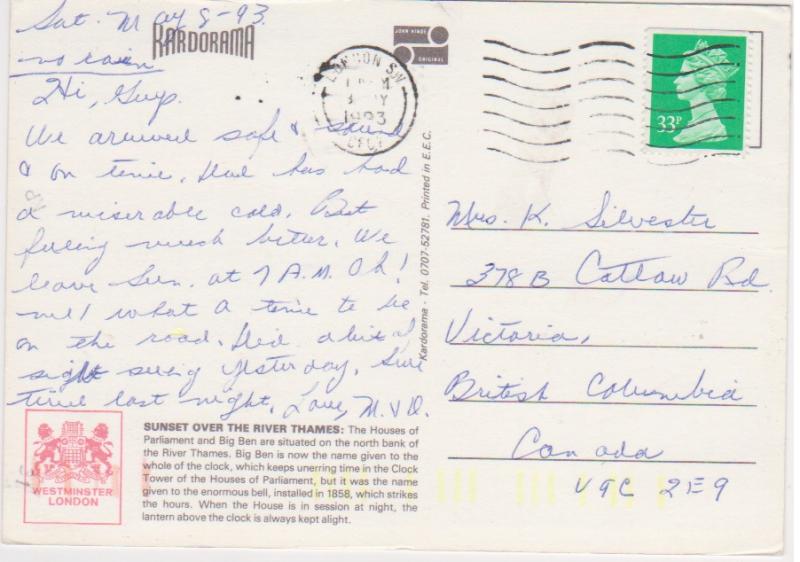 Sat. May 8-93.
no rain
Hi, Guys.
We arrived safe & sound
& on time. Had has had
a miserable cold. But
feeling much better. We
leave Sun. at 7 A.M. Oh!
me! what a time to be
on the road. Did a bit of
sight seeing yesterday.
time last night. Love, M. & D.
KARDORAMA
JOHN HINDE
ORIGINAL
LONDON SW
1993
33P
Kardorama - Tel. 0707-52781. Printed in E.E.C.
Mrs. K. Silvester
378 B Cattaw Rd.
Victoria,
British Columbia
Canada
V9C 2E9
WESTMINSTER
LONDON
SUNSET OVER THE RIVER THAMES: The Houses of
Parliament and Big Ben are situated on the north bank of
the River Thames. Big Ben is now the name given to the
whole of the clock, which keeps unerring time in the Clock
Tower of the Houses of Parliament, but it was the name
given to the enormous bell, installed in 1858, which strikes
the hours. When the House is in session at night, the
lantern above the clock is always kept alight.